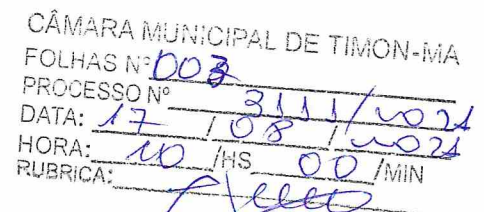 CÂMARA MUNICIPAL DE TIMON-MA
FOLHAS Nº 003
PROCESSO Nº 3111/2021
DATA: 17 / 08 / 2021
HORA: 10 /HS 00 /MIN
RUBRICA: